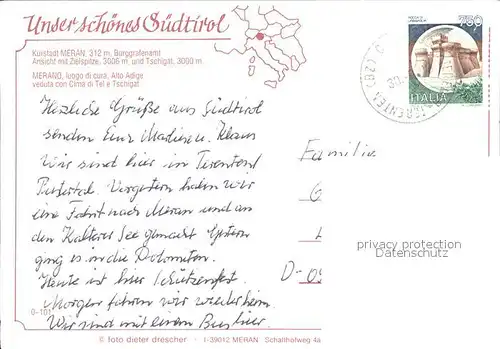 Unser schönes Südtirol
Kurstadt MERAN, 312 m, Burggrafenamt
Ansicht mit Zielspitze, 3006 m, und Tschigat, 3000 m.
MERANO, luogo di cura, Alto Adige
veduta con Cima di Tel e Tschigat
750
ITALIA
TERENTEN (BZ)
Herzliche Grüße aus Südtirol
senden Eure Klaus
Wir sind hier in Terenten
Pustertal. Vorgestern haben wir
eine Fahrt nach Meran und an
den Kalterer See gemacht. Gestern
ging es in die Dolomiten.
Heute ist hier Schützenfest.
Morgen fahren wir wieder heim.
Wir sind mit einem Bus hier.
Familie
D-
privacy protection
Datenschutz
© foto dieter drescher · I-39012 MERAN Schallhofweg 4a